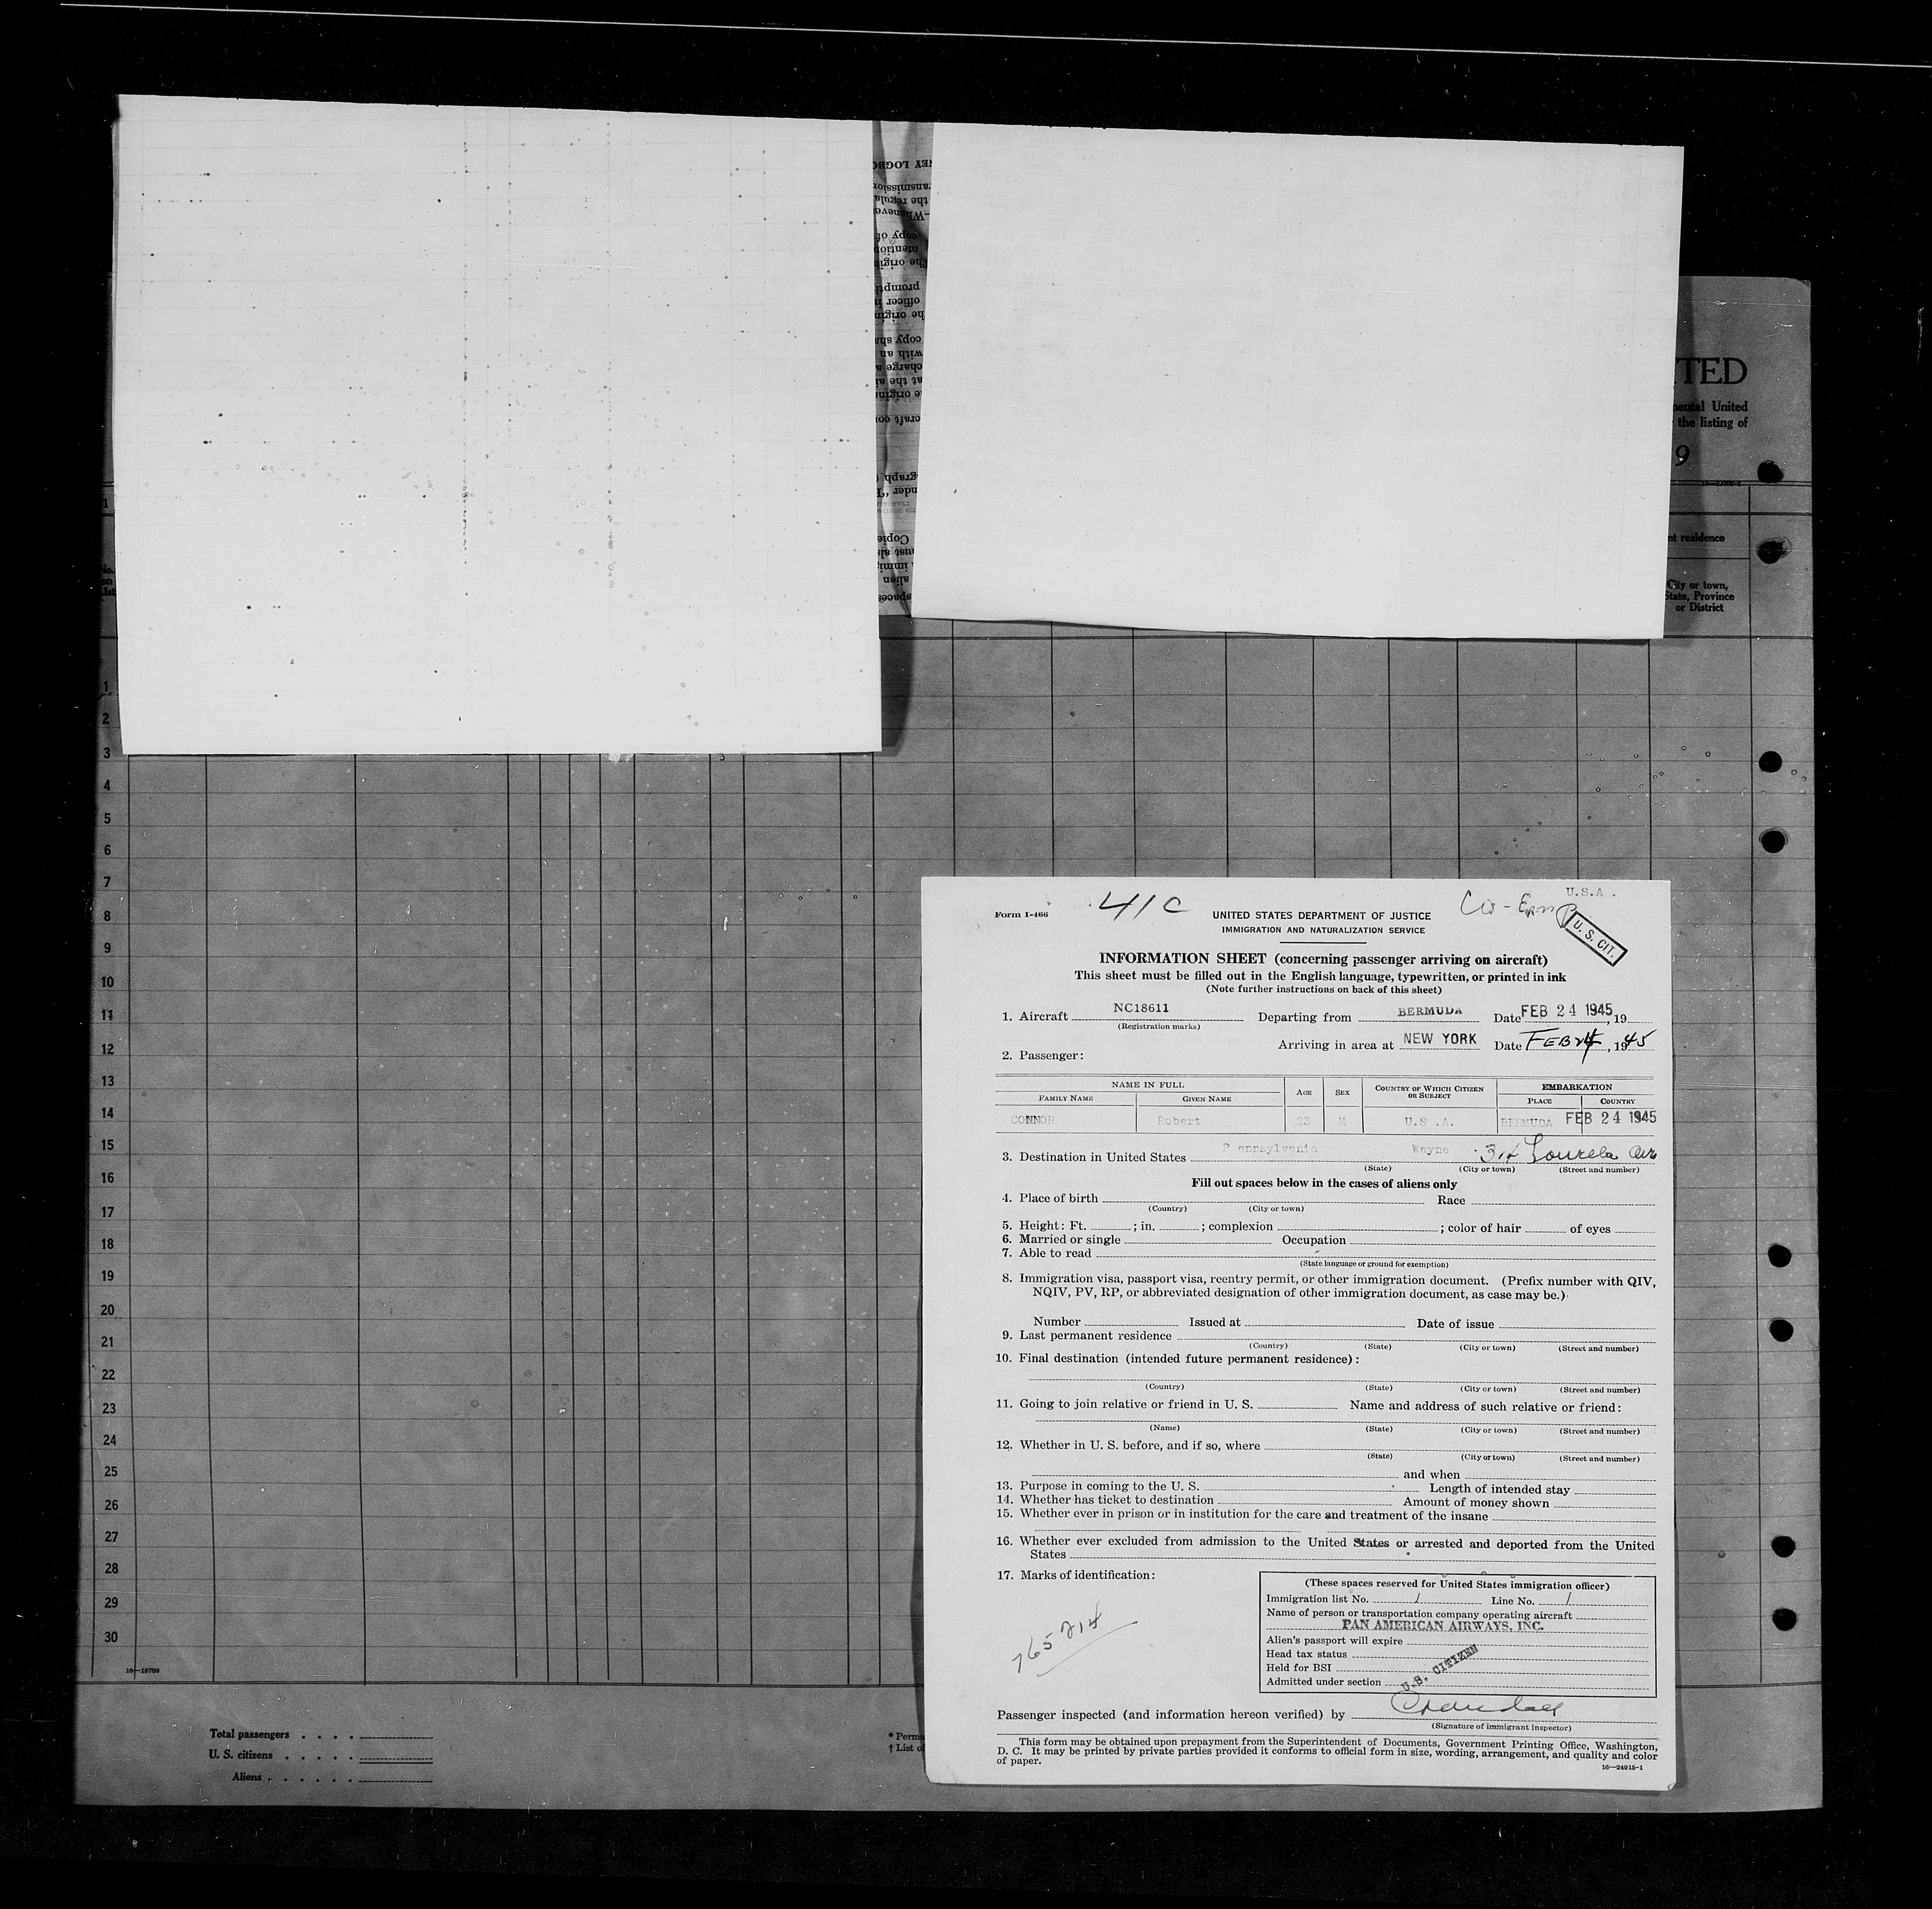 NEY LOGBO
ransmission
the regula
-Whenever
copy of
mention
The origin
promptl
officer i
he origin
copy sha
with an
charge a
at the ai
e origin
craft con
agraph
nder "P
Copie
ust als
immig
alien
spaces
ITED
nental United
the listing of
9
nt residence
City or town,
State, Province
or District
1
No.
on
List
1
2
3
4
5
6
7
8
9
10
11
12
13
14
15
16
17
18
19
20
21
22
23
24
25
26
27
28
29
30
16—18709
Total passengers . . . .
U. S. citizens . . . . .
Aliens . . . . . .
* Perma
† List of
U.S.A.
Form I-466
41C
UNITED STATES DEPARTMENT OF JUSTICE
IMMIGRATION AND NATURALIZATION SERVICE
Civ-Emp
U. S. CIT.
INFORMATION SHEET (concerning passenger arriving on aircraft)
This sheet must be filled out in the English language, typewritten, or printed in ink
(Note further instructions on back of this sheet)
1. Aircraft NC18611 Departing from BERMUDA Date FEB 24 1945, 19
(Registration marks)
Arriving in area at NEW YORK Date FEB 24, 1945
2. Passenger:
NAME IN FULL AGE SEX COUNTRY OF WHICH CITIZEN OR SUBJECT EMBARKATION
FAMILY NAME GIVEN NAME PLACE COUNTRY
CONNOR Robert 23 M U.S.A. BERMUDA FEB 24 1945
3. Destination in United States Pennsylvania Wayne
(State) (City or town) (Street and number)
Fill out spaces below in the cases of aliens only
4. Place of birth Race
(Country) (City or town)
5. Height: Ft. ; in. ; complexion ; color of hair of eyes
6. Married or single Occupation
7. Able to read
(State language or ground for exemption)
8. Immigration visa, passport visa, reentry permit, or other immigration document. (Prefix number with QIV,
NQIV, PV, RP, or abbreviated designation of other immigration document, as case may be.)
Number Issued at Date of issue
9. Last permanent residence
(Country) (State) (City or town) (Street and number)
10. Final destination (intended future permanent residence):
(Country) (State) (City or town) (Street and number)
11. Going to join relative or friend in U. S. Name and address of such relative or friend:
(Name) (State) (City or town) (Street and number)
12. Whether in U. S. before, and if so, where
(State) (City or town) (Street and number)
and when
13. Purpose in coming to the U. S. Length of intended stay
14. Whether has ticket to destination Amount of money shown
15. Whether ever in prison or in institution for the care and treatment of the insane
16. Whether ever excluded from admission to the United States or arrested and deported from the United
States
17. Marks of identification:
765214
(These spaces reserved for United States immigration officer)
Immigration list No. 1 Line No. 1
Name of person or transportation company operating aircraft
PAN AMERICAN AIRWAYS, INC.
Alien's passport will expire
Head tax status
Held for BSI
Admitted under section U.S. CITIZEN
Passenger inspected (and information hereon verified) by Crandall
(Signature of immigrant inspector)
This form may be obtained upon prepayment from the Superintendent of Documents, Government Printing Office, Washington,
D. C. It may be printed by private parties provided it conforms to official form in size, wording, arrangement, and quality and color
of paper.
16—24915-1